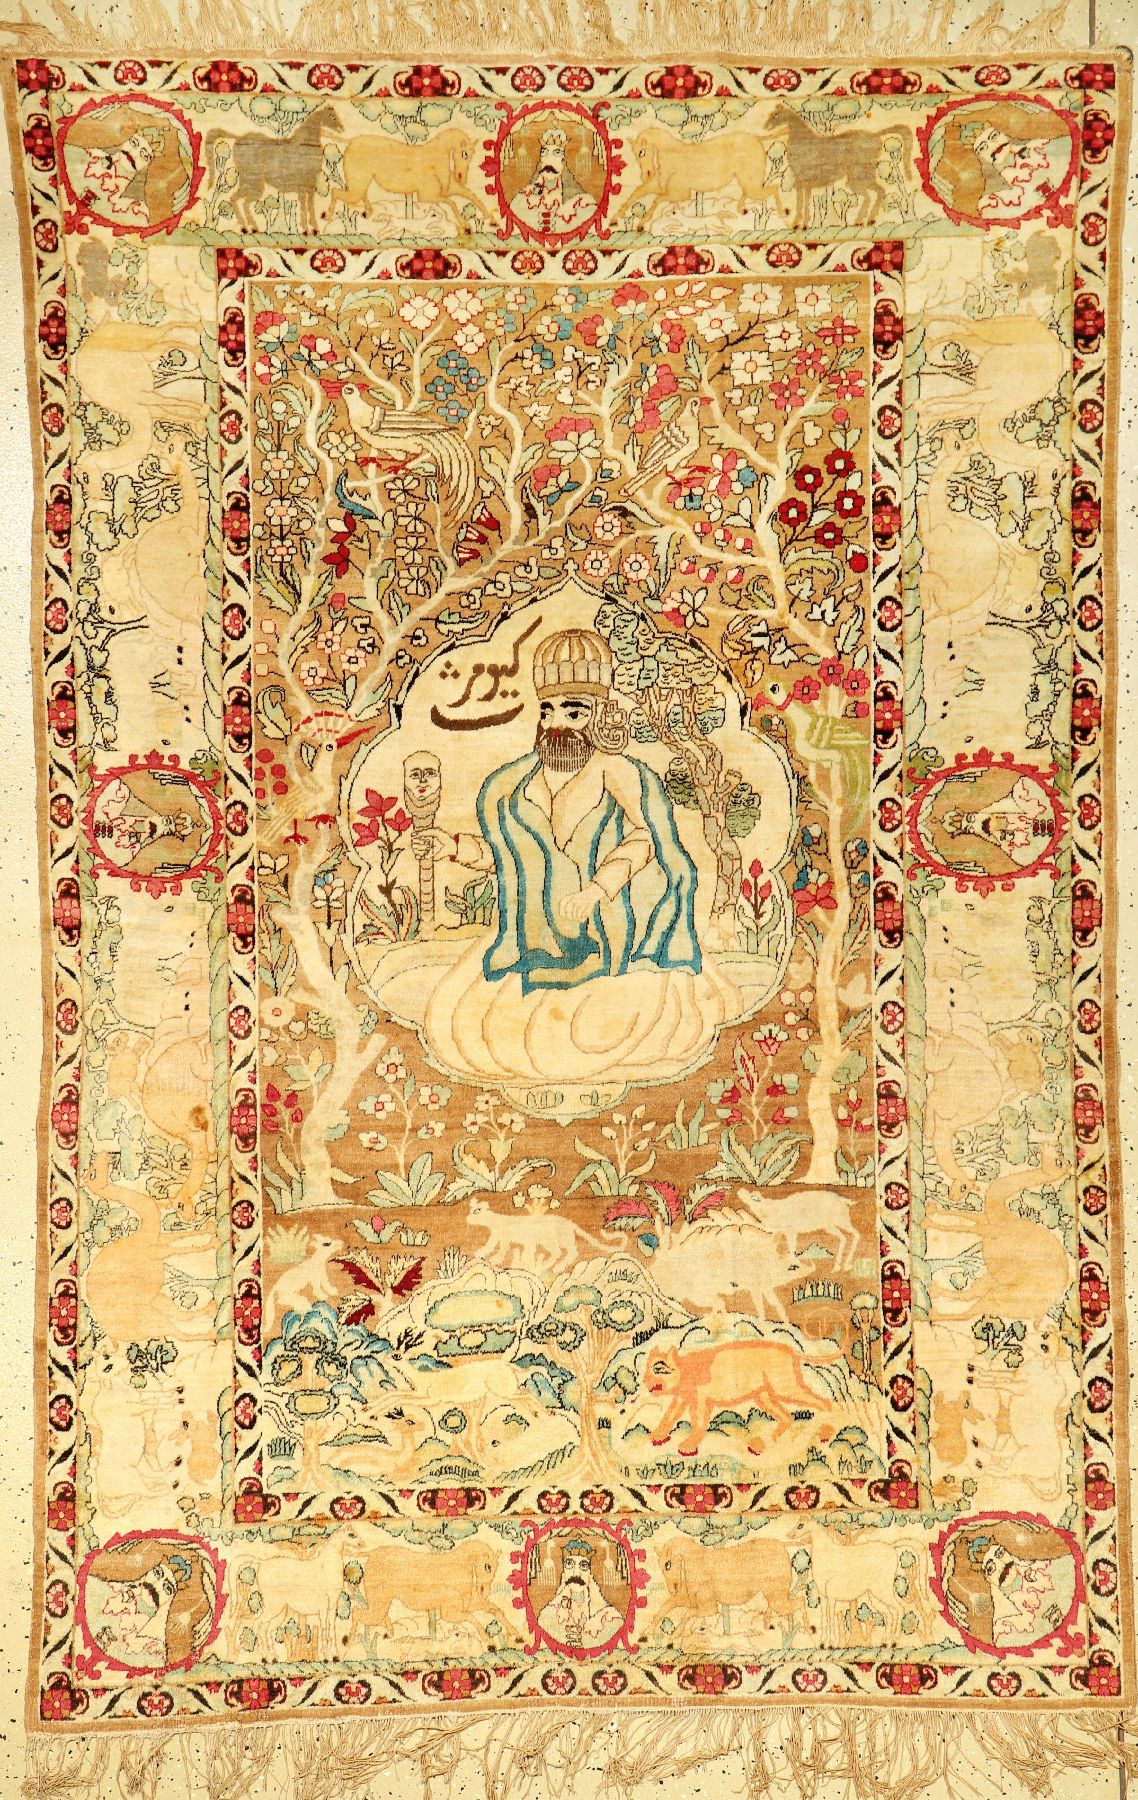 کیومرث